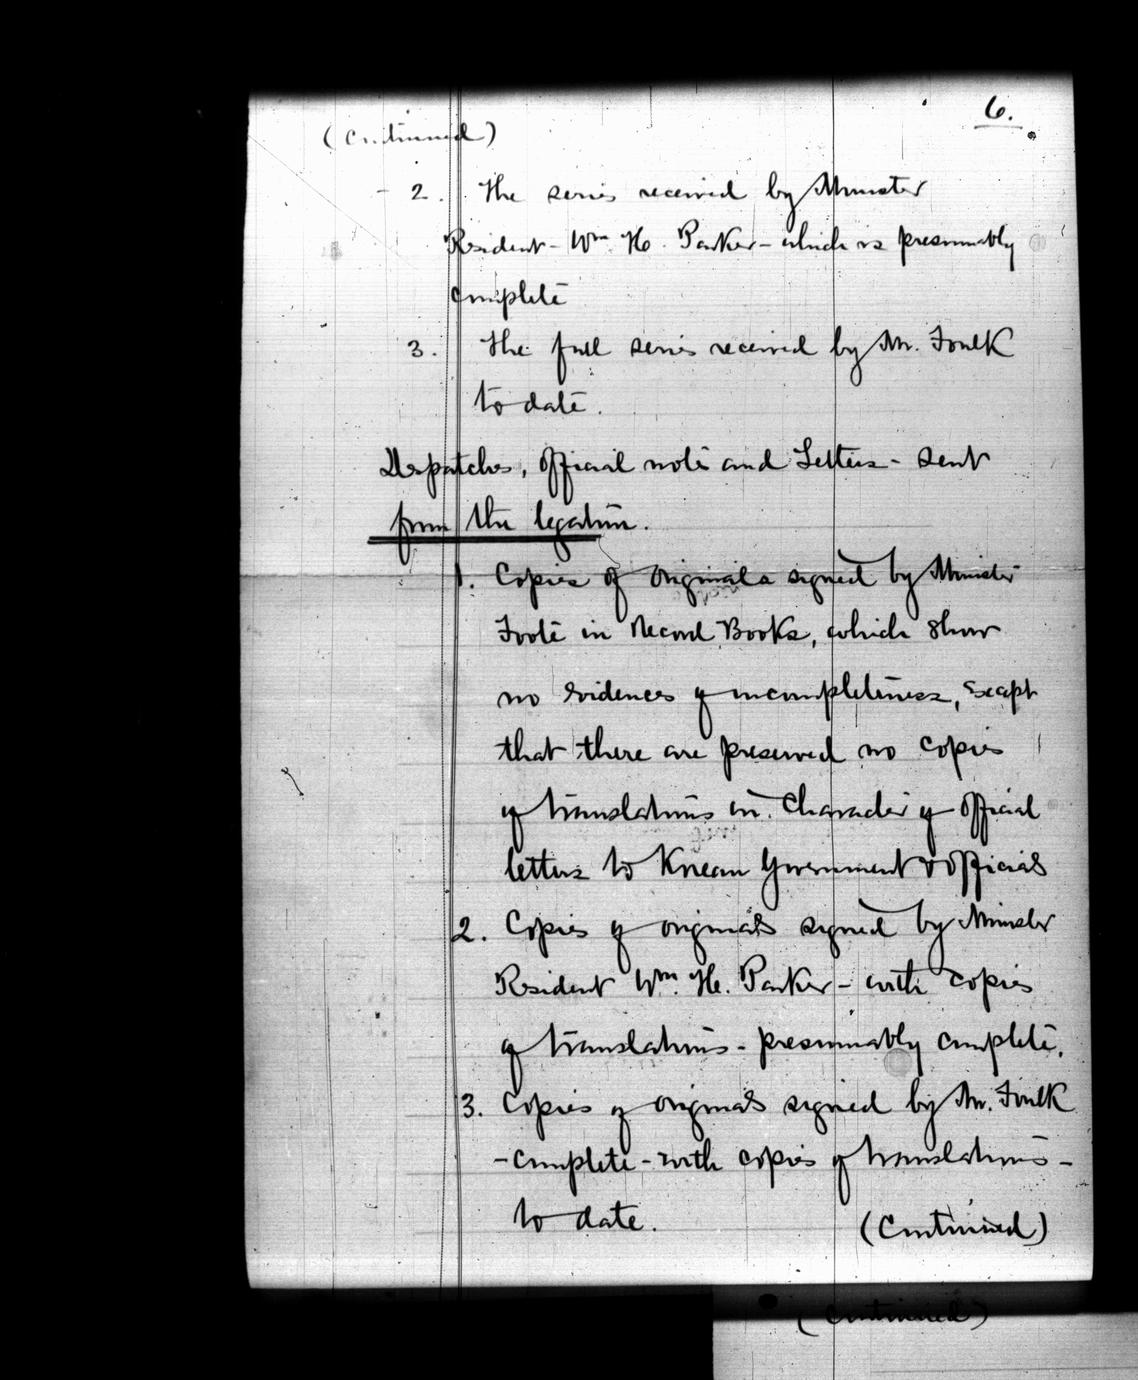 6.
(Continued)
- 2. The series received by Minister
Resident - Wm H. Parker - which is presumably
complete
3. The full series received by Mr. Foulk
to date.
Despatches, official notes and Letters - sent
from the legation.
1. Copies of originals signed by Minister
Foote in Record Books, which show
no evidences of incompleteness, except
that there are preserved no copies
of translations in character of official
letters to Korean Government & officials
2. Copies of originals signed by Minister
Resident Wm. H. Parker - with copies
of translations - presumably complete.
3. Copies of originals signed by Mr. Foulk
- complete - with copies of translations -
to date.
(Continued)
(Continued)